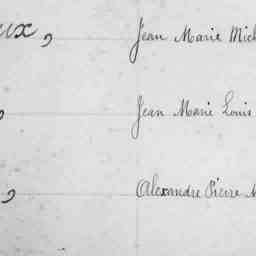 eux, Jean Marie Mich
, Jean Marie Louis
, Alexandre Pierre M